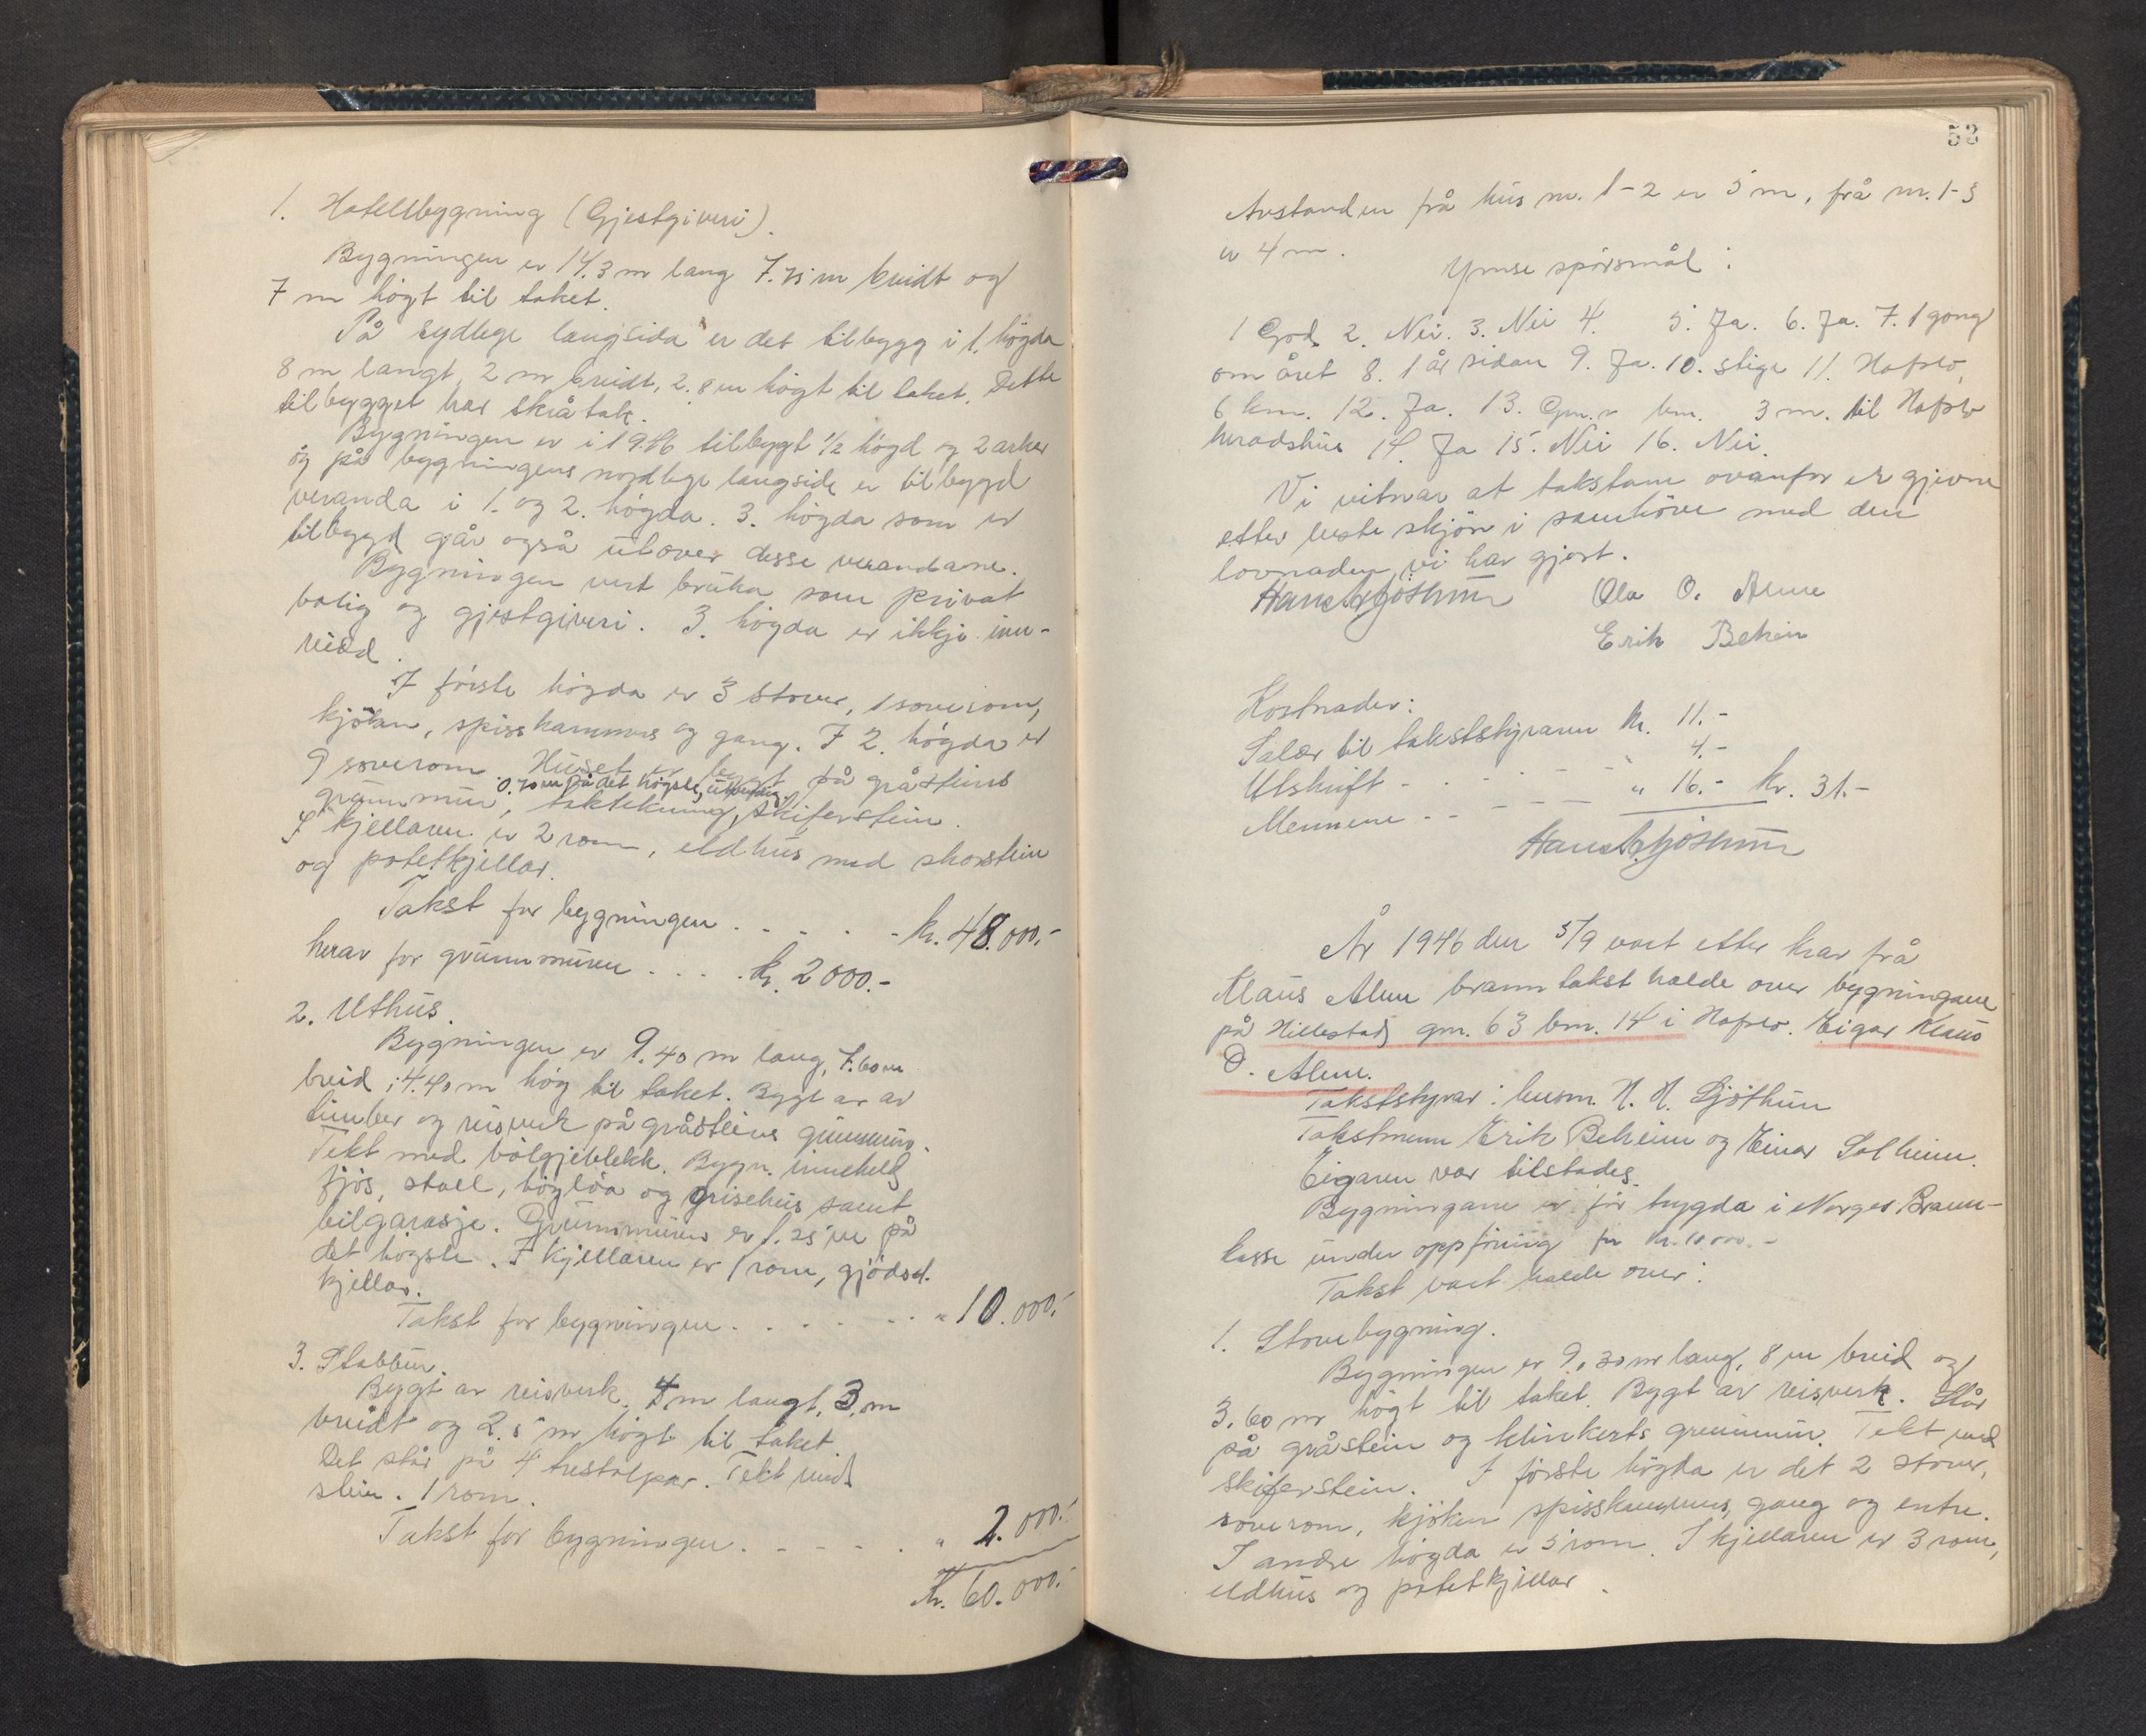 1. Hotellbygning (Gjestgiveri).
Bygningen er 14.3 m lang 7.75 m breidt og
7 m högt til taket.
På sydlege langsida er det tilbygg i 1. högda
8 m langt, 2 m breidt, 2.8 m högt til taket. Dette
tilbygget har skråtak.
Bygningen er i 1946 tilbygt 1/2 högd og 2 arker
og på bygningens nordlege langside er tilbygd
veranda i 1. og 2. högda. 3. högda som er
tilbygd går også utover desse verandane.
Bygningen vert bruka som privat
bolig og gjestgiveri. 3. högda er ikkje inn-
reidd.
I förste högda er 3 stover, 1 soverom,
kjöken, spisskammers og gang. I 2. högda er
9 soverom. Huset er bygt på gråsteins
0.70 m på det högste, utvendig.
grunnmur, taktekning skiferstein.
I kjellaren er 2 rom, eldhus med skorstein
og potetkjellar.
Takst for bygningen . . . . . kr. 48.000.-
herav for grunnmuren . . . . kr. 2000.-
2. Uthus.
Bygningen er 9.40 m lang, 7.60 m
breid, 4.40 m hög til taket. Bygt av av
timber og reisverk på gråsteins grunnmur.
Tekt med bölgjeblekk. Bygn. inneheld
fjös, stall, höylöa og grisehus samt
bilgarasje. Grunnmuren er 1.25 m på
det högste. I kjellaren er 1 rom, gjödsel-
kjellar.
Takst for bygningen . . . . . . . " 10.000.-
3. Stabbur.
Bygt av reisverk. 4 m langt, 3 m
breidt og 2.5 m högt til taket.
Det står på 4 trestolpar. Tekt med
stein. 1 rom.
Takst for bygningen . . . . . " 2.000.-
Kr. 60.000.-
53
Avstanden frå hus nr. 1-2 er 5 m, frå nr. 1-3
er 4 m.
Ymse spörsmål:
1 God 2. Nei. 3. Nei 4. 5. Ja. 6. Ja. 7. 1 gong
om året 8. 1 år sidan 9. Ja. 10. stige 11. Hafslo,
6 km. 12. Ja. 13. Gm.r km. 3 m. til Hafslo
heradshus 14. Ja 15. Nei 16. Nei.
Vi vitnar at takstane ovanfor er gjevne
etter beste skjön i samhöve med den
lovnaden vi har gjort.
Hans H. Ljöthun Ola O. Alme
Erik Beheim
Kostnader:
Salær til takststyraren kr. 11.-
Utskrift - . . - - - " 4.-
Mennene . - - - - " 16.- kr. 31.-
Hans H. Ljöthun
År 1946 den 5/9 vart etter krav frå
Klaus Alme branntakst halde over bygningane
på Hillestad gnr. 63 bnr. 14 i Hafslo. Eigar Klaus
O. Alme.
Takststyrar: lensm. H. H. Ljöthun
Takstmenn Erik Beheim og Einar Solheim.
Eigaren var tilstades.
Bygningane er för trygda i Norges Brann-
kasse under oppföring for kr. 10000.-
Takst vart halde over:
1. Stovebygning.
Bygningen er 9,30 m lang, 8 m breid og
3,60 m högt til taket. Bygt av reisverk. Står
på gråstein og klinkerts grunnmur. Tekt med
skiferstein. I förste högda er det 2 stover,
soverom, kjöken spisskammers, gang og entre.
I andre högda er 5 rom. I kjellaren er 3 rom,
eldhus og potetkjellar.